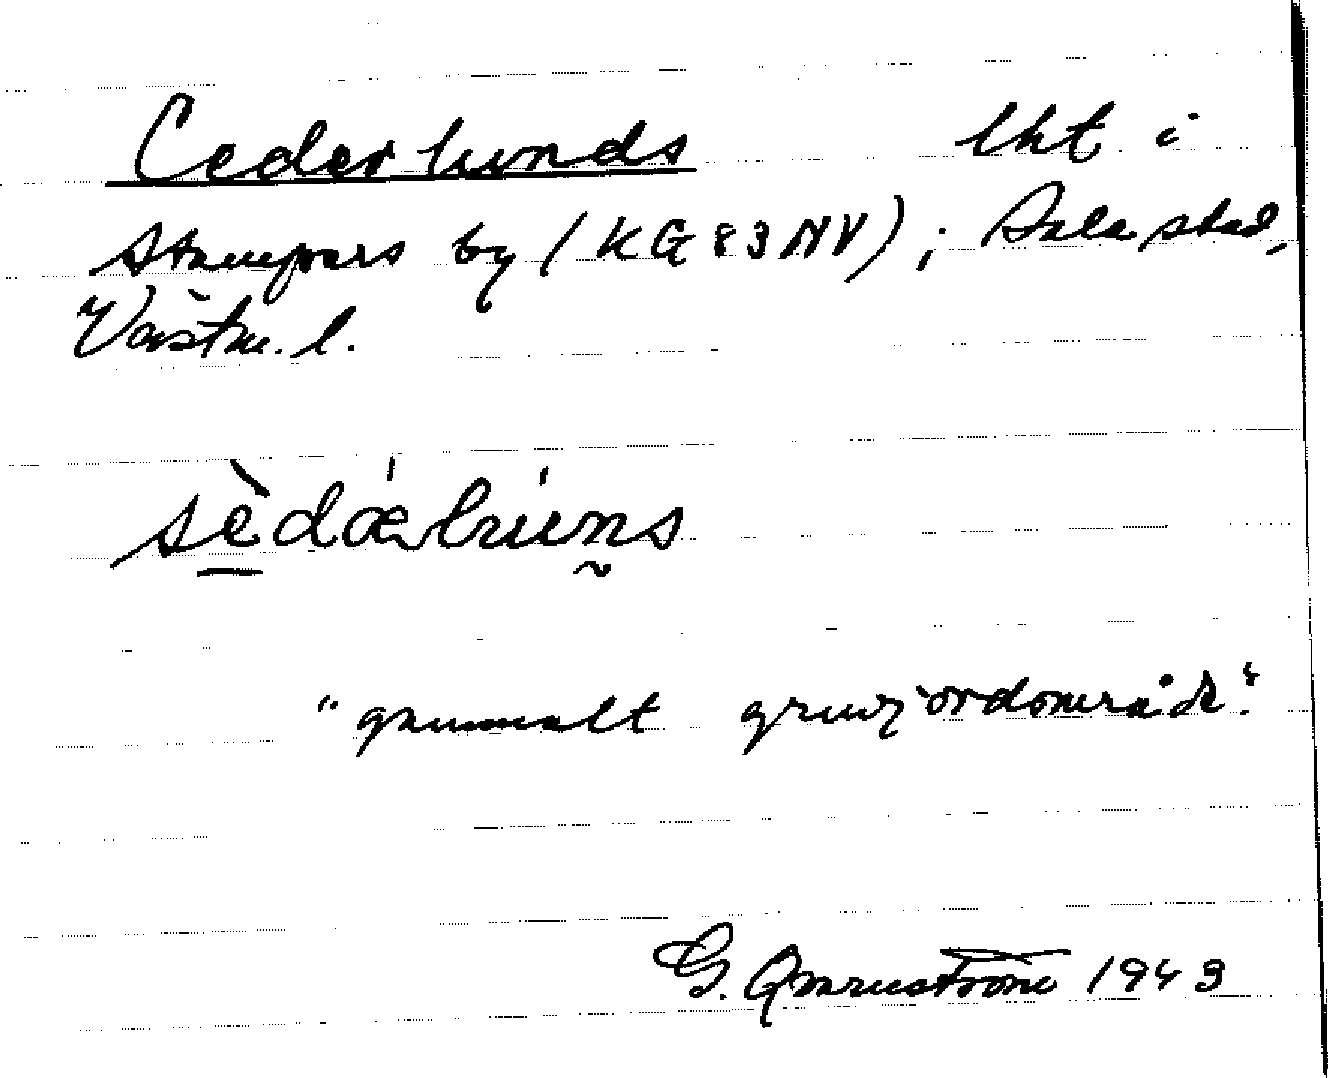 Cederlunds lht i
Stampers by (KG 83 NV); Sala stad,
Västm. l.
sèdælúns
"gammalt gruvjordområde".
G. Qvarnström 1943